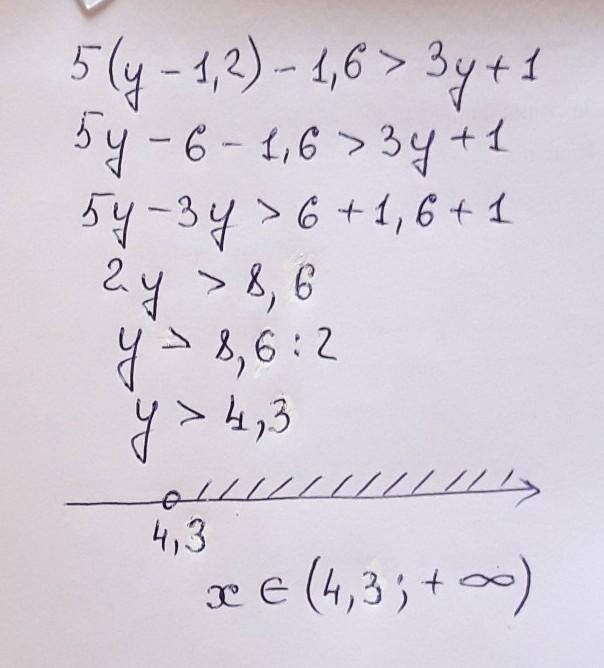 5(y - 1,2) - 1,6 > 3y + 1
5y - 6 - 1,6 > 3y + 1
5y - 3y > 6 + 1,6 + 1
2y > 8,6
y > 8,6 : 2
y > 4,3
4,3
x ∈ (4,3; + ∞)